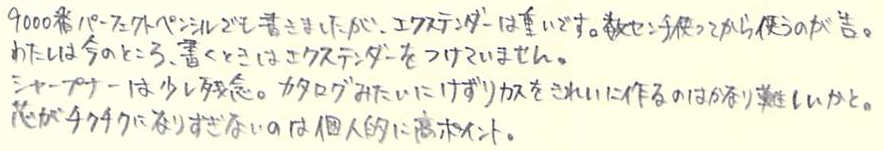 9000番パーフェクトペンシルでも書きましたが、エクステンダーは重いです。数センチ使ってから使うのが吉。
わたしは今のところ、書くときはエクステンダーをつけていません。
シャープナーは少し残念。カタログみたいにけずりカスをきれいに作るのはかなり難しいかと。
芯がチクチクになりすぎないのは個人的に高ポイント。